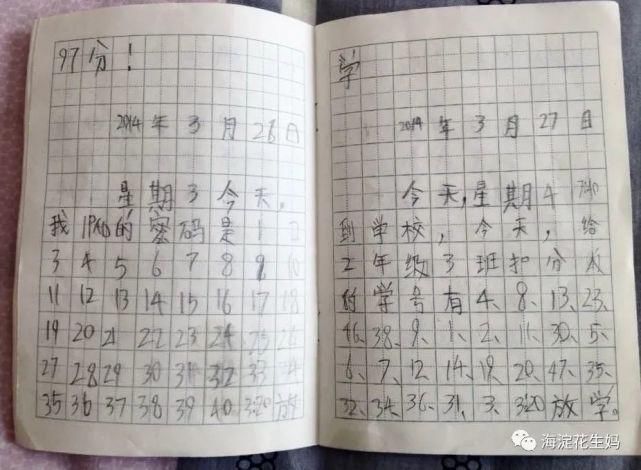 97分!
2014年3月26日
星期3今天,
我IPAD的密码是1 2
3 4 5 6 7 8 9 10
11 12 13 14 15 16 17 18
19 20 21 22 23 24 25 26
27 28 29 30 31 32 33 34
35 36 37 38 39 40 3:20 放
学
2014年3月27日
今天,星期4
到学校,今天,给
2年级3班扣分人
的学号有4、8、13、23、
46、38、9、1、2、11、30、5、
6、7、12、14、19、20、47、35、
32、34、36、31、3、3:20放学。
海淀花生妈